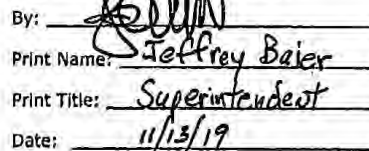 By:
Print Name: Jeffrey Baier
Print Title: Superintendent
Date: 11/13/19